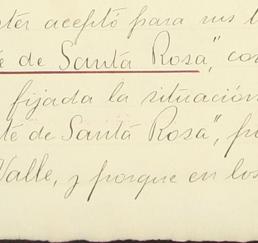 ster aceptó para sus t
te de Santa Rosa", con
fijada la situación
te de Santa Rosa", p
Valle, y porque en los